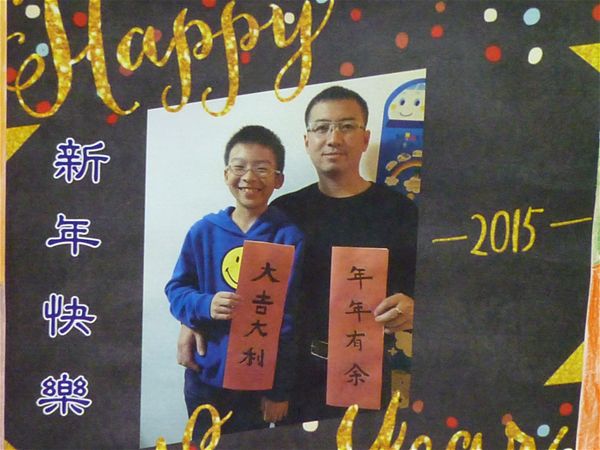 Happy
新年快樂
大吉大利
年年有余
2015
Year